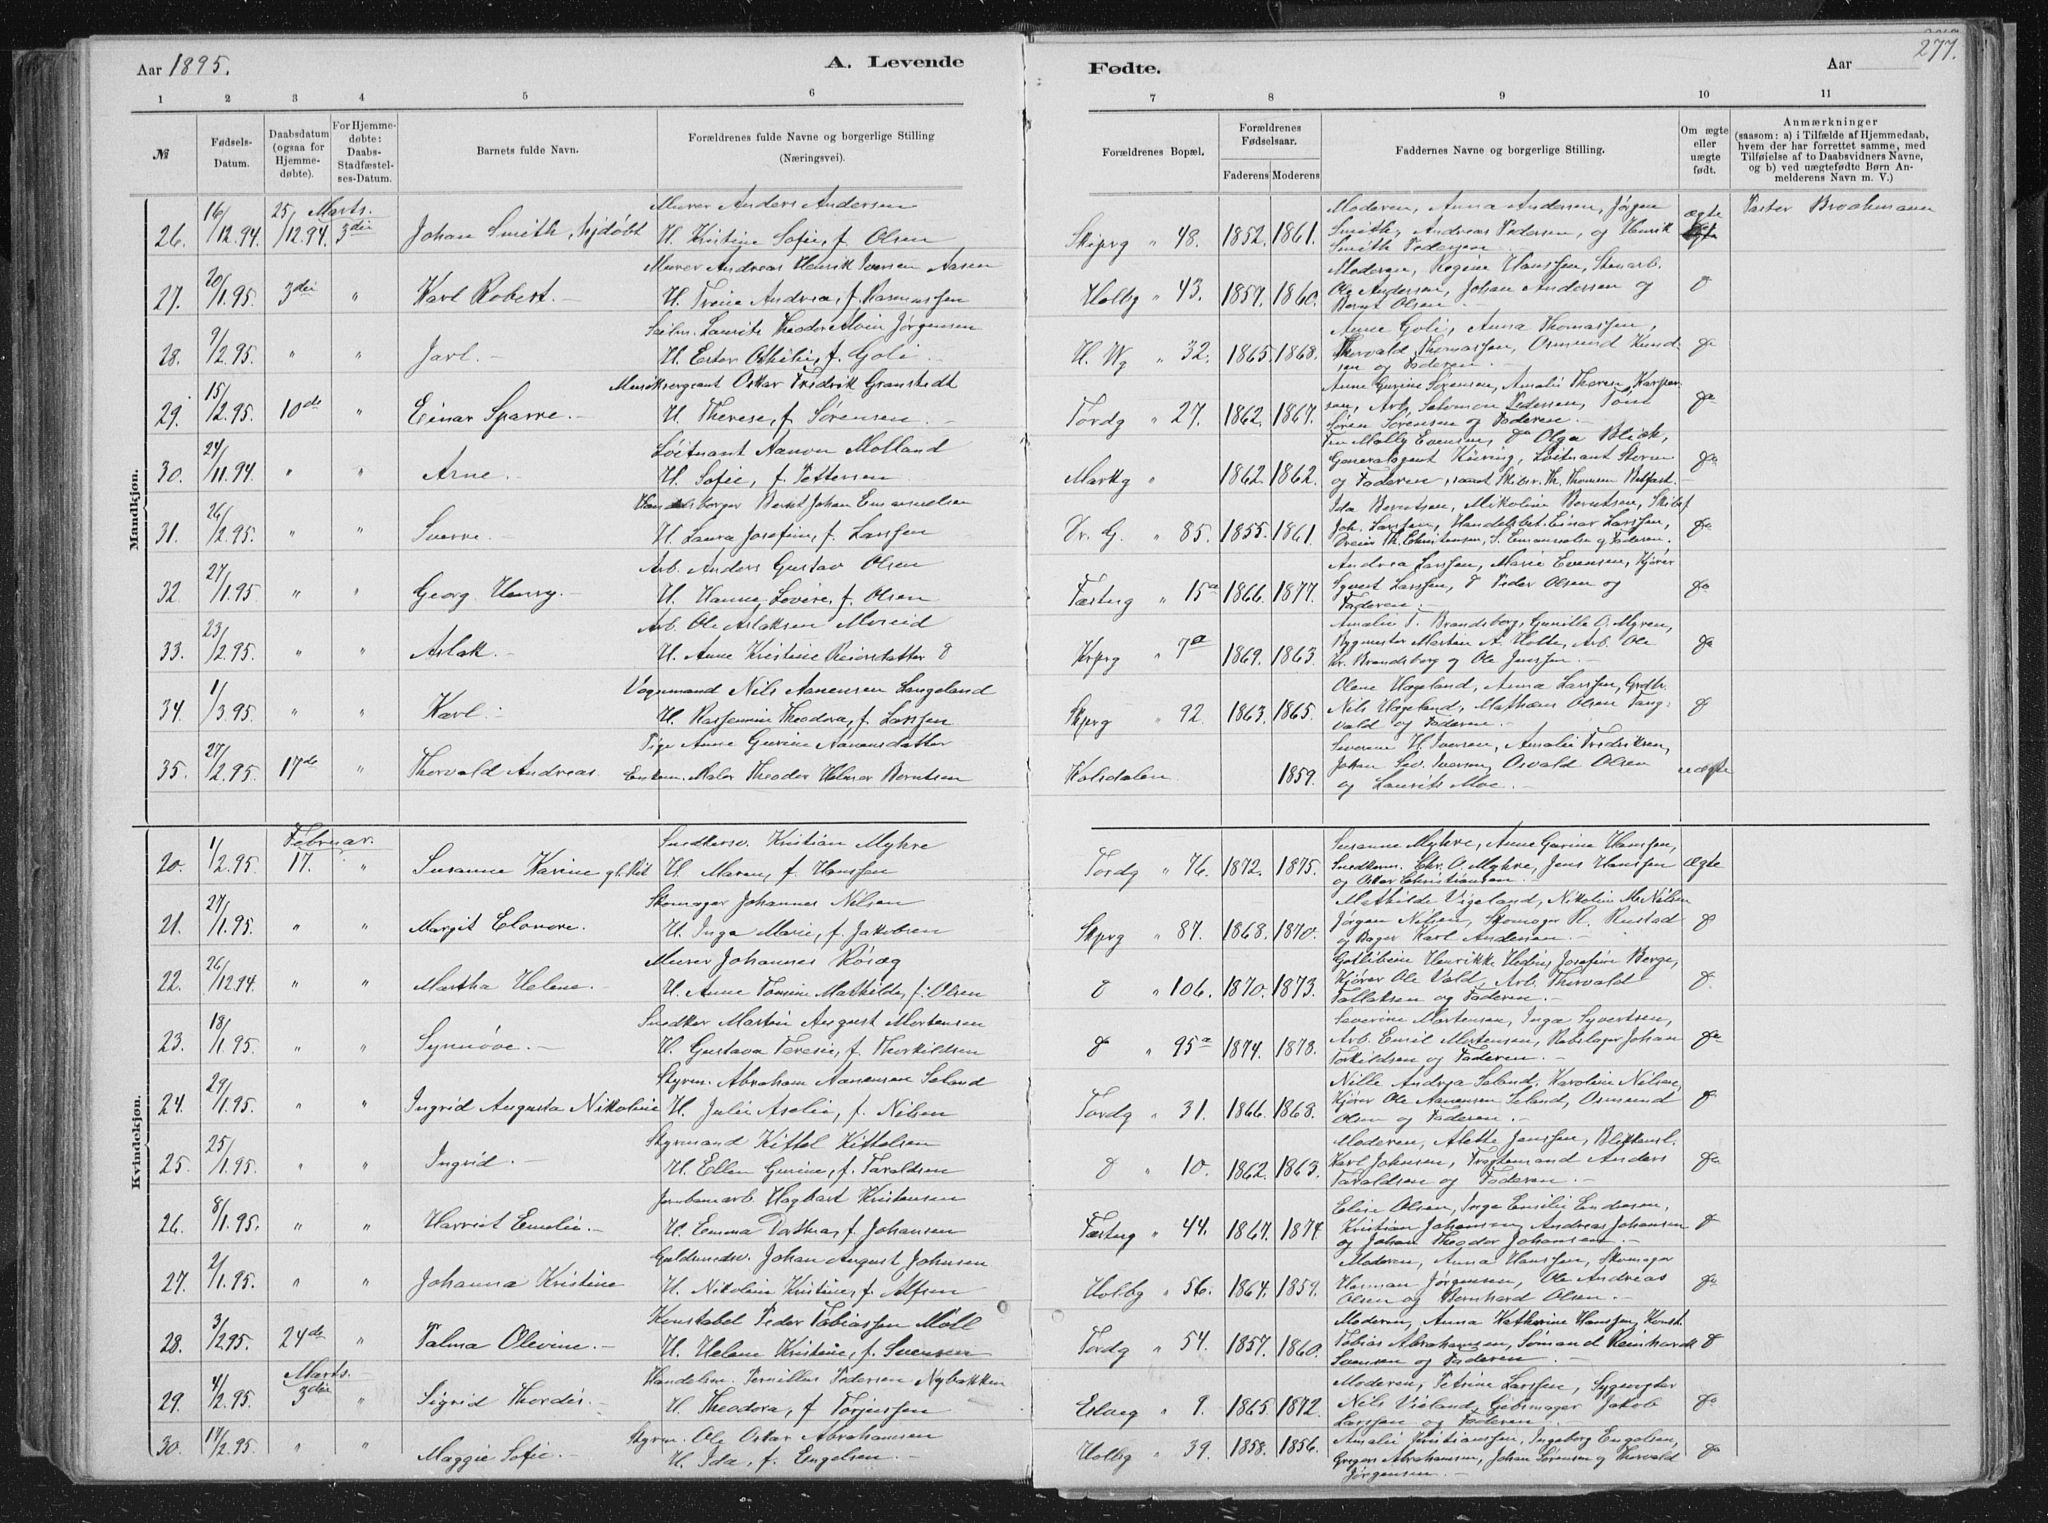 Aar 1895.
A. Levende
Fødte.
Aar
277.
1 2 3 4 5 6 7 8 9 10 11
№
Fødsels-Datum.
Daabsdatum (ogsaa for Hjemmedøbte).
For Hjemmedøbte: Daabs-Stadfæstelses-Datum.
Barnets fulde Navn.
Forældrenes fulde Navne og borgerlige Stilling (Næringsvei).
Forældrenes Bopæl.
Forældrenes Fødselsaar.
Faderens Moderens
Faddernes Navne og borgerlige Stilling.
Om ægte eller uægte født.
Anmærkninger (saasom: a) i Tilfælde af Hjemmedaab, hvem der har forrettet samme, med Tilføielse af to Daabsvidners Navne, og b) ved uægtefødte Børn Anmelderens Navn m. V.)
Mandkjøn.
26. 16/12.94. 25/12.94. Marts. 3die Johan Smith, Njdøbt
Murer Anders Andersen
H. Kristine Sofie, f. Olsen
Skiprg " 48. 1852. 1861.
Moderen, Anna Andersen, Jørgen
Smith, Andreas Pedersen, og Henrik
Smith Pedersen
ægte
Pastor Broohmann
27. 20/1.95. 3die " Karl Robert.
Murer Andreas Henrik Iversen Aasen
H. Trine Andrea, f. Rasmussen
Holbg " 43. 1859. 1860.
Moderen, Regine Hanssen, Stenarb.
Ole Andersen, Johan Andersen og
Bernt Olsen
28. 7/2.95. " " Jarl.
Seilm. Laurits Theodor Alvin Jørgensen
H. Ester Othilie, f. Goli
H. Wg " 32. 1865. 1868.
Anne Goli, Anna Thomassen,
Thorvald Thomassen, Osmund Knudsen og Faderen.
29. 15/2.95. 10de " Einar Sparre.
Musiksergeant Oskar Fredrik Granstedt
H. Therese, f. Sørensen
Tordg " 27. 1862. 1867.
Anne Gurine Sørensen, Amalie Thoren Kaspersen, Arb. Salomon Pedersen,
Søren Sørensen og Faderen.
30. 24/11.94. " " Arne.
Løitnant Aanon Molland
H. Sofie, f. Pettersen
Markg " 1862. 1862.
Frn Molly Evensen, do Olga Blick,
Generalagent Küring, Løitnant Storm
og Faderen, samt Skibsr. Th. Thomsen Belfast.
31. 26/2.95. " " Sverre.
Handelsborger Bernt Johan Emanuelsen
H. Laura Josefine, f. Larssen
Dr. G. " 85. 1855. 1861.
Ida Berntsen, Nikoline Berntsen, Skibsf
Joh. Larssen, Handelsbet. Einar Larssen,
Dreier Th. Christensen, S. Emanuelsen og Faderen.
32. 27/1.95. " " Georg Henry.
Arb. Anders Gustav Olsen
H. Hanne Lovise, f. Olsen
Fæstng " 15a 1866. 1877.
Andrea Larssen, Marie Evensen, Kjører
Syvert Larssen, do Peder Olsen og
Faderen.
33. 23/2.95. " " Aslak.
Arb. Ole Aslaksen Moseid
H. Anne Kristine Reiersdatter
Krprg " 7a 1869. 1863.
Amalie T. Brandsborg, Gunille O. Myren,
Bygmester Martin A. Holte, Arb. Ole
Kr. Brandsborg og Ole Jenssen.
34. 1/3.95. " " Karl.
Vognmand Nils Aanensen Langeland
H. Rasmine Theodora, f. Larssen
Skprg " 92. 1863. 1865.
Olene Hægeland, Anna Larssen, Grdbr.
Nils Hægeland, Mathias Olsen Tangvald og Faderen.
35. 27/2.95. 17de " Thorvald Andreas.
Pige Anne Gurine Aanensdatter
Enkem. Maler Theodor Helmer Berntsen
Kolsdalen 1859.
Severine H. Iversen, Amalie Fredriksen,
Johan Sev. Iversen, Osvald Olsen
og Laurits Moe.
uægte
Kvindekjøn.
20. 1/2.95. Februar. 17. " Susanne Karine
Snedkersv. Kristian Myhre
H. Maren, f. Hanssen
Tordg " 76. 1872. 1875.
Susanne Myhre, Anne Gurine Hanssen,
Snedkerm. Chr. O. Myhre, Jens Hanssen
og Oskar Christiansen.
ægte
21. 27/1.95. " " Margit Elonore.
Skomager Johannes Nilsen
H. Inga Marie, f. Jakobsen
Skprg " 87. 1868. 1870.
Mathilde Vigeland, Nikoline M. Nilsen
Jørgen Nilsen, Skomager R. Rustad
og Bager Karl Andersen.
22. 26/12.94. " " Martha Helene.
Murer Johannes Røsæg
H. Anne Tomine Mathilde, f. Olsen
" 106. 1870. 1873.
Gotlibine Henrikke Hedin, Josefine Berge,
Kjører Ole Vald, Arb. Thorvald
Tallaksen og Faderen.
23. 18/1.95. " " Synnøve.
Snedker Martin August Mortensen
H. Gustava Teresie, f. Thorkildsen
" 95a 1874. 1878.
Severine Mortensen, Inga Syvertsen,
Arb. Emil Mortensen, Rebslager Johan
Torkildsen og Faderen.
24. 29/1.95. " " Ingrid Augusta Nikoline
Styrm. Abraham Aanensen Seland
H. Julie Aselie, f. Nilsen
Tordg " 31. 1866. 1868.
Nille Andrea Seland, Karoline Nilsen,
Kjører Ole Aanensen Seland, Osmund
Olsen og Faderen.
25. 25/1.95. " " Ingrid.
Styrmand Kittel Kittelsen
H. Ellen Gurine, f. Taraldsen
" 10. 1862. 1863.
Moderen, Alette Janssen, Blikkensl.
Karl Johnsen, Fragtemand Anders
Taraldsen og Faderen.
26. 8/1.95. " " Harriet Emelie.
Jernbanearb. Hagbart Kristensen
H. Emma Dorthea, f. Johansen
Fæstng " 44. 1867. 1874.
Elise Olsen, Inga Emilie Endresen,
Kristian Johansen, Andreas Johansen
og Johan Theodor Johansen.
27. 2/1.95. " " Johanna Kristine
Guldsmedsv. Johan August Johnsen
H. Nikoline Kristine, f. Alfsen
Holbg " 56. 1864. 1859.
Moderen, Anna Hanssen, Skomager
Herman Jørgensen, Ole Andreas
Olsen og Bernhard Olsen.
28. 3/2.95. 24de " Palma Olevine.
Konstabel Peder Tobiassen Møll
H. Helene Kristine, f. Svensen
Tordg " 54. 1857. 1860.
Moderen, Anna Katherine Hanssen, Konst.
Tobias Abrahamsen, Sømand Reinhardt
Svensen og Faderen.
29. 4/2.95. Marts. 3die " Sigrid Thordis.
Handelsm. Pernillus Pedersen Nybakken
H. Theodora, f. Torjussen
Elveg " 9. 1865. 1872.
Moderen, Petrine Larssen, Sygevogter
Nils Vieland, Gjæbsmager Jakob
Larssen og Faderen
30. 17/2.95. " " Maggie Sofie.
Styrm. Ole Oskar Abrahamsen
H. Ida, f. Engelsen.
Holbg " 39. 1858. 1856.
Amalie Kristianssen, Ingeborg Engelsen,
Gregers Abrahamsen, Johan Sørensen og Thorvald
Jørgensen.